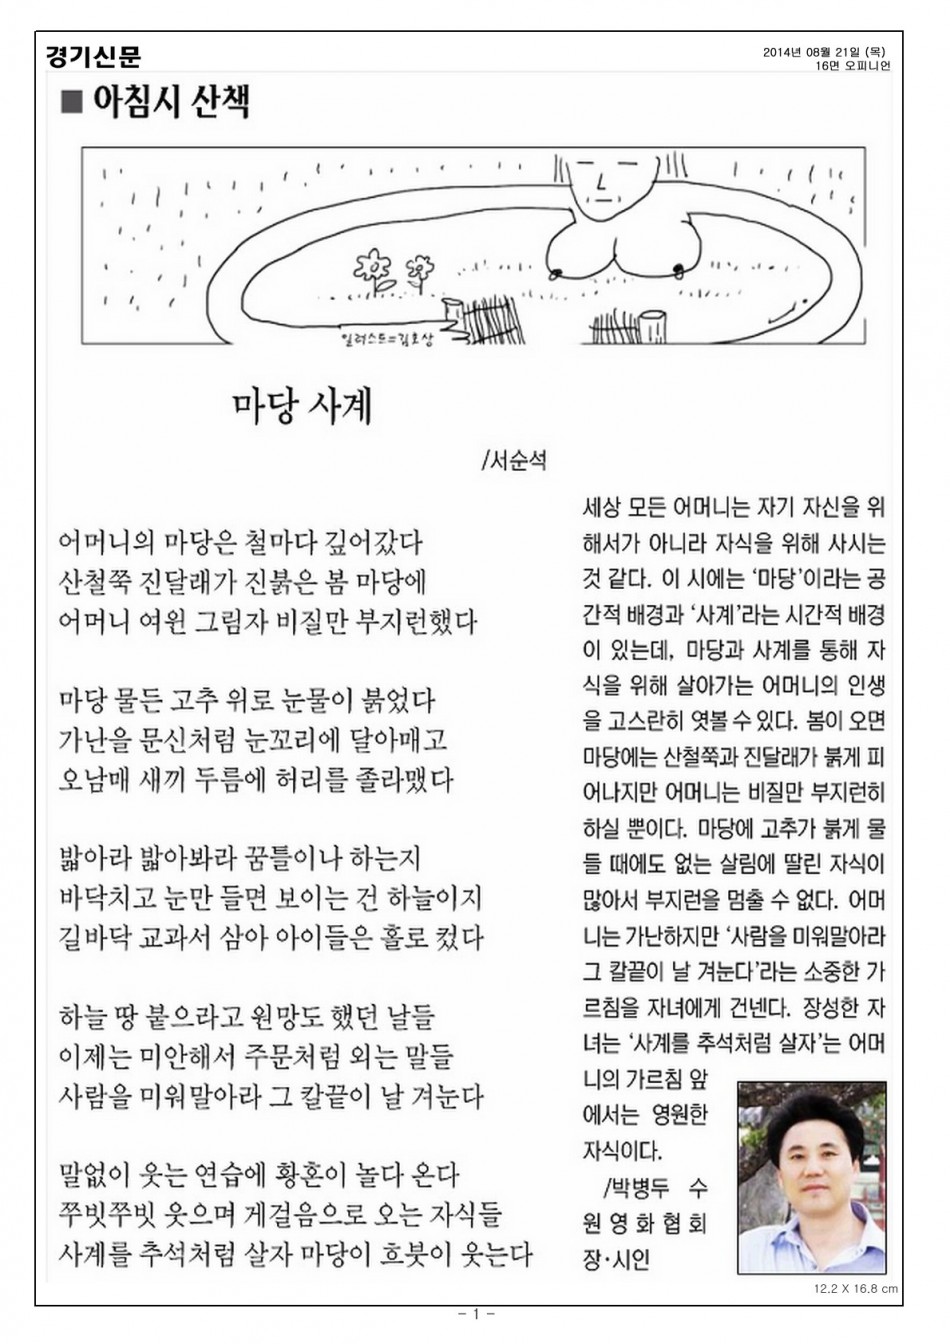 경기신문
2014년 08월 21일 (목)
16면 오피니언
■ 아침시 산책
일러스트=김호상
마당 사계
/서순석
어머니의 마당은 철마다 깊어갔다
산철쭉 진달래가 진붉은 봄 마당에
어머니 여윈 그림자 비질만 부지런했다
마당 물든 고추 위로 눈물이 붉었다
가난을 문신처럼 눈꼬리에 달아매고
오남매 새끼 두름에 허리를 졸라맸다
밟아라 밟아봐라 꿈틀이나 하는지
바닥치고 눈만 들면 보이는 건 하늘이지
길바닥 교과서 삼아 아이들은 홀로 컸다
하늘 땅 붙으라고 원망도 했던 날들
이제는 미안해서 주문처럼 외는 말들
사람을 미워말아라 그 칼끝이 날 겨눈다
말없이 웃는 연습에 황혼이 놀다 온다
쭈빗쭈빗 웃으며 게걸음으로 오는 자식들
사계를 추석처럼 살자 마당이 흐붓이 웃는다
세상 모든 어머니는 자기 자신을 위
해서가 아니라 자식을 위해 사시는
것 같다. 이 시에는 ‘마당’이라는 공
간적 배경과 ‘사계’라는 시간적 배경
이 있는데, 마당과 사계를 통해 자
식을 위해 살아가는 어머니의 인생
을 고스란히 엿볼 수 있다. 봄이 오면
마당에는 산철쭉과 진달래가 붉게 피
어나지만 어머니는 비질만 부지런히
하실 뿐이다. 마당에 고추가 붉게 물
들 때에도 없는 살림에 딸린 자식이
많아서 부지런을 멈출 수 없다. 어머
니는 가난하지만 ‘사람을 미워말아라
그 칼끝이 날 겨눈다’라는 소중한 가
르침을 자녀에게 건넨다. 장성한 자
녀는 ‘사계를 추석처럼 살자’는 어머
니의 가르침 앞
에서는 영원한
자식이다.
/박병두 수
원영화협회
장·시인
12.2 X 16.8 cm
- 1 -